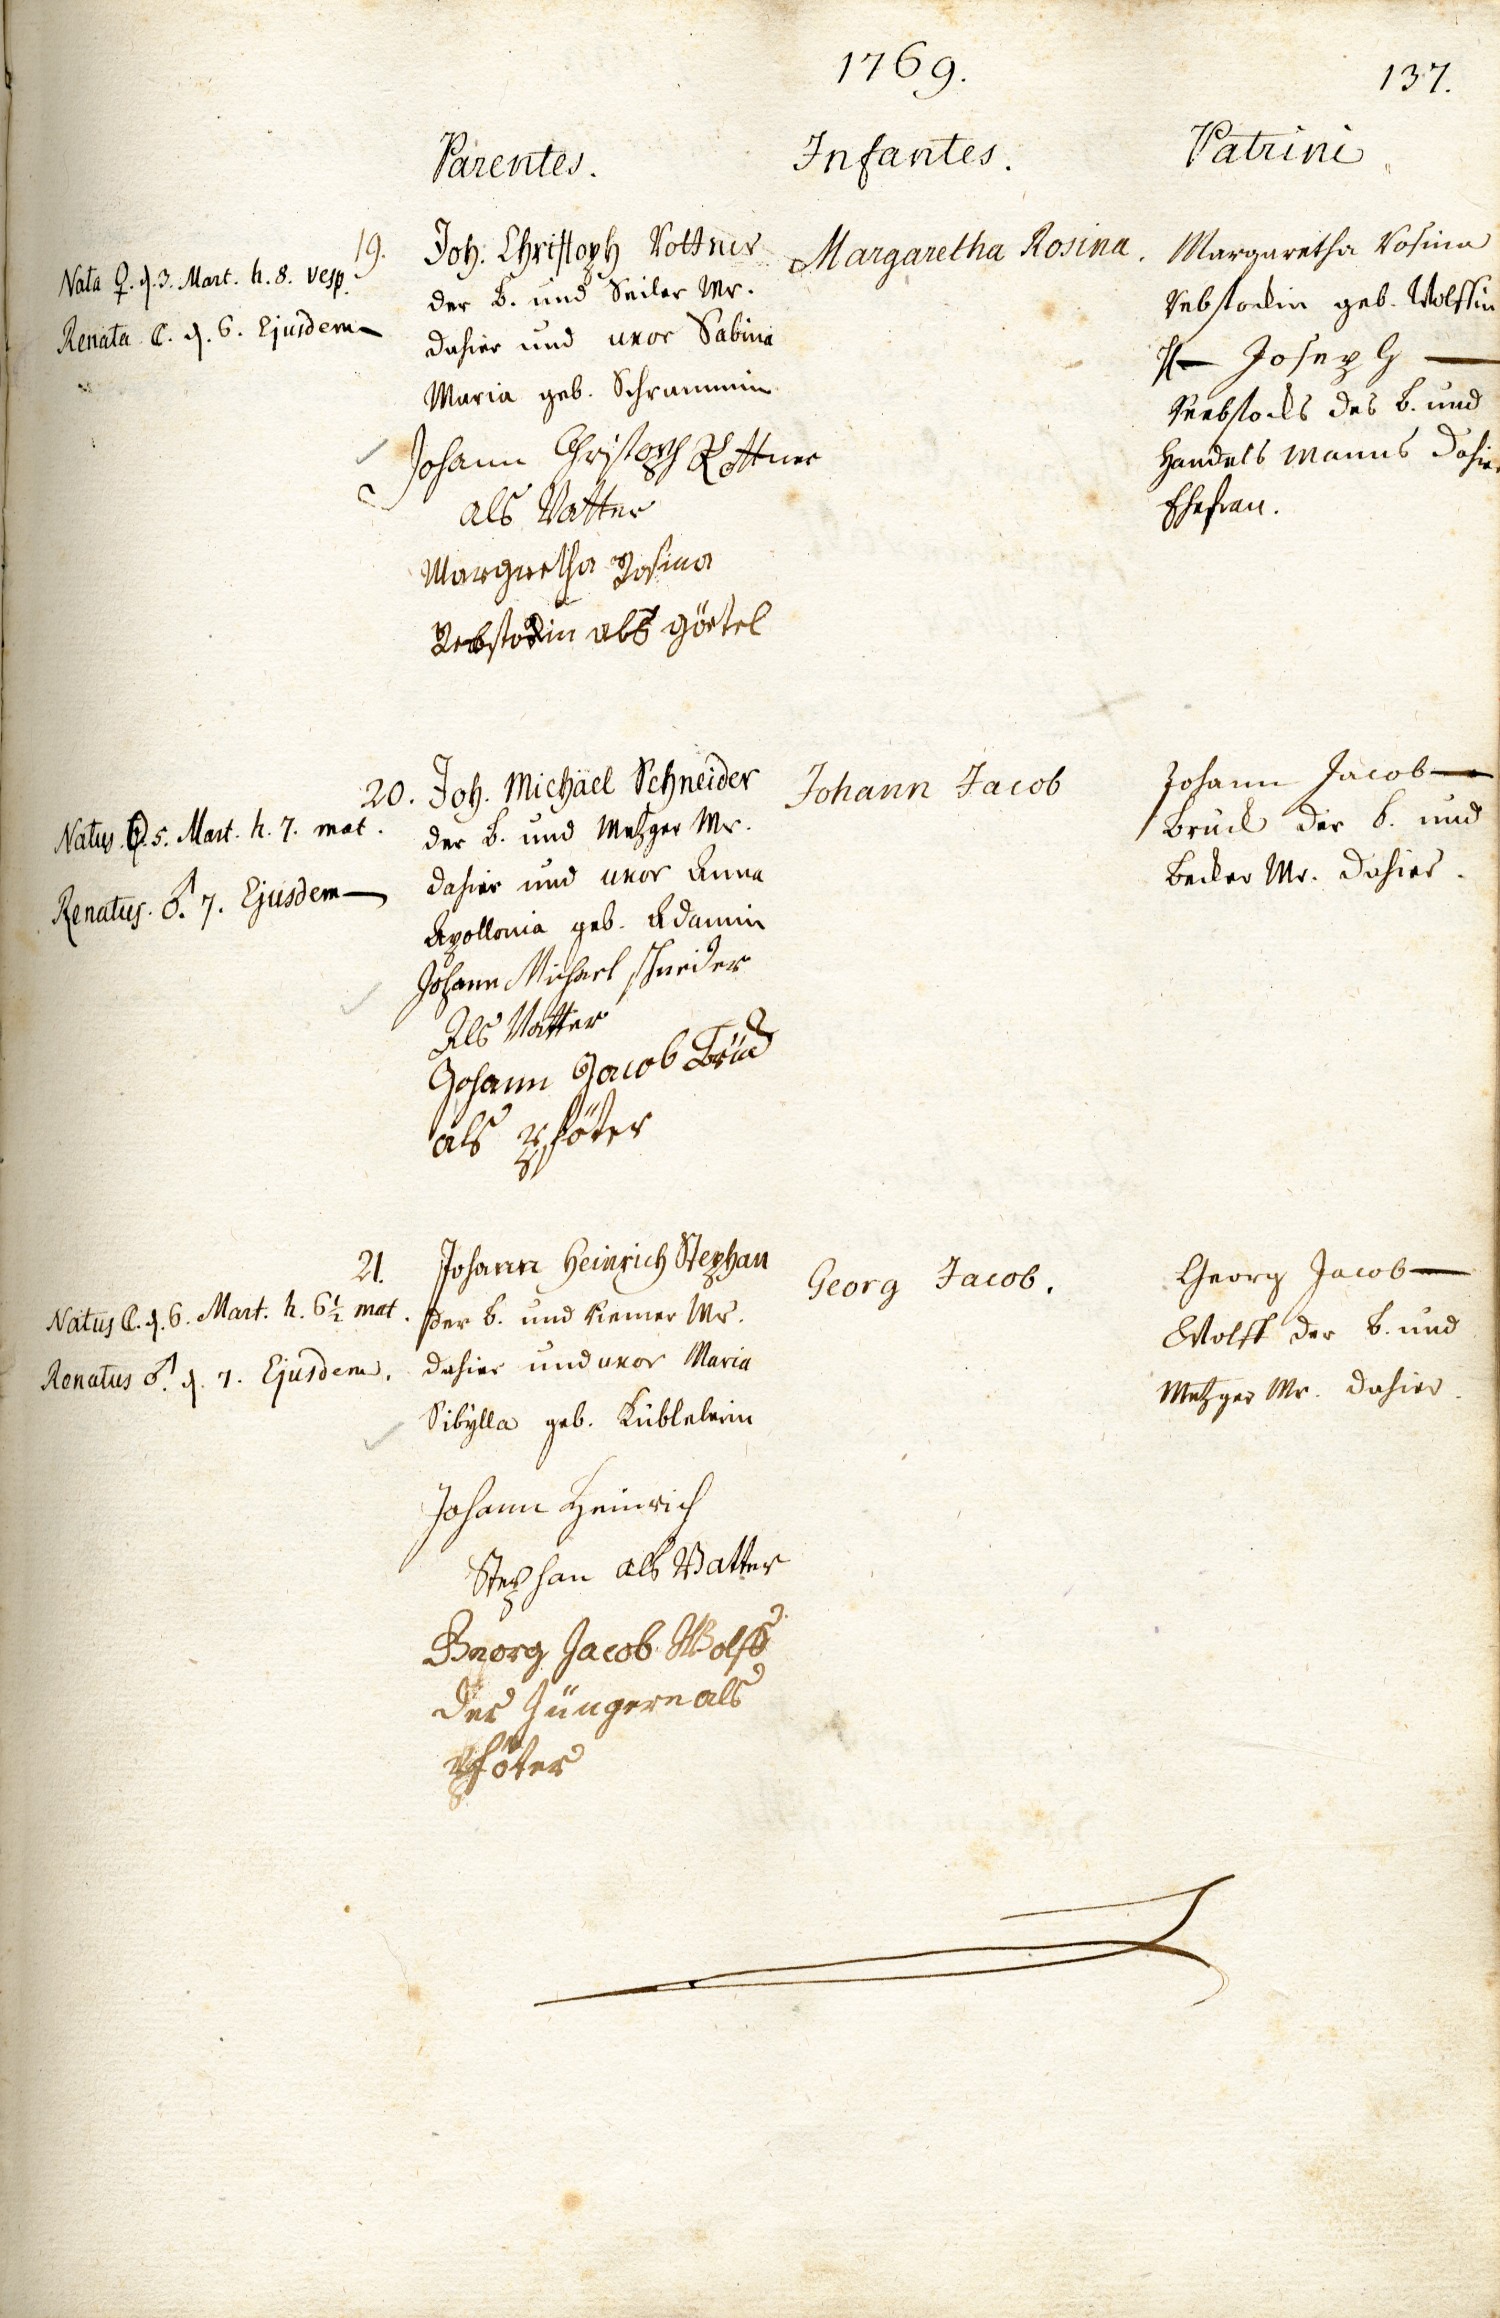 1769.
137.
Parentes.
Infantes.
Patrini
19.
Nata ♀. d. 3. Mart. h. 8. vesp.
Renata ☾. d. 6. Ejusdem
Joh. Christoph Rottner
der b. und Seiler Mr.
dahier und uxor Sabina
Maria geb. Schrammin
Johann Christoph Rottner
als Vatter
Margretha Rosina
Rebstockin als götel
Margaretha Rosina.
Margaretha Rosina
Rebstockin geb. Wolffin
Joseph
Rebstocks des b. und
Handels Manns dahier
Ehefrau.
20.
Natus 5. Mart. h. 7. mat.
Renatus ♂. 7. Ejusdem
Joh. Michäel Schneider
der b. und Metzger Mr.
dahier und uxor Anna
Apollonia geb. Adamin
Johann Michael schneider
Als Vatter
Johann Jacob Brück
als
Johann Jacob
Johann Jacob
Bruck der b. und
Becker Mr. dahier.
21.
Natus ☾. d. 6. Mart. h. 6½ mat.
Renatus ♂. d. 7. Ejusdem.
Johann Heinrich Stephan
der b. und Kiemer Mr.
dahier und uxor Maria
Sibÿlla geb. Küblelerin
Johann Heinrich
Stephan als Vatter
Georg Jacob Wolff
der Jüngere als
Georg Jacob.
Georg Jacob
Wolff der b. und
Metzger Mr. dahier.